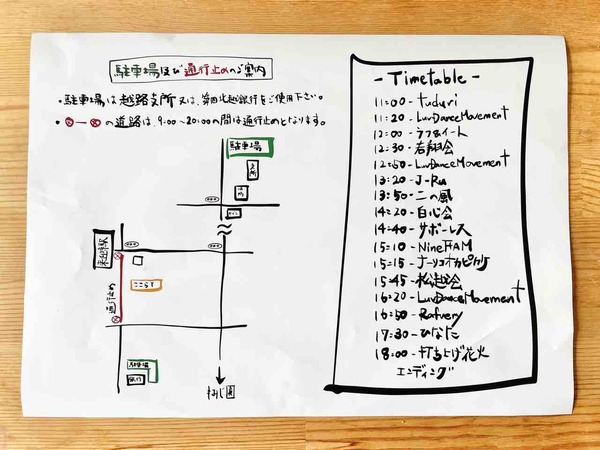 駐車場及び通行止めのご案内
・駐車場は越路支所又は、第四北越銀行をご使用下さい。
・⊗―⊗の道路は、9:00~20:00の間は通行止めとなります。
駐車場
支所
来迎寺駅
通行止め
こころす
駐車場
銀行
もみじ園
- Timetable -
11:00 - tuduri
11:20 - LuvDanceMovement
12:00 - ラフ&イート
12:30 - 若翔会
12:50 - LuvDanceMovement
13:20 - J-Ru
13:50 - 二の風
14:20 - 白心会
14:40 - サボーレス
15:10 - Nine
15:15 - ナーリコオカピカリ
15:45 - 松越会
16:20 - LuvDanceMovement
16:50 - Rafvery
17:30 - ひなた
18:00 - 打ち上げ花火
エンディング